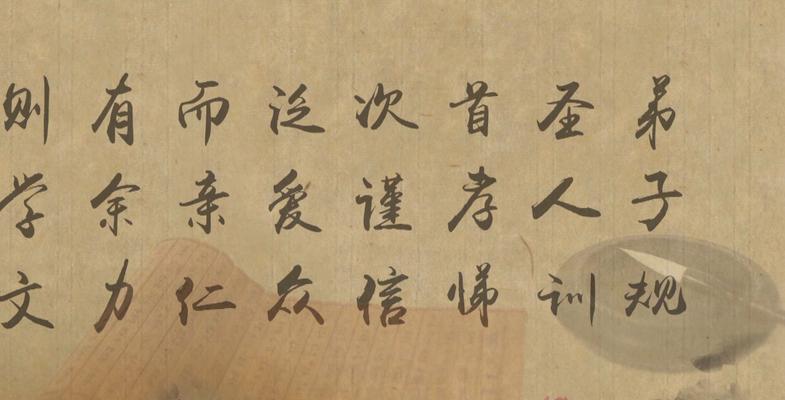 弟子规
圣人训
首孝悌
次谨信
泛爱众
而亲仁
有余力
则学文